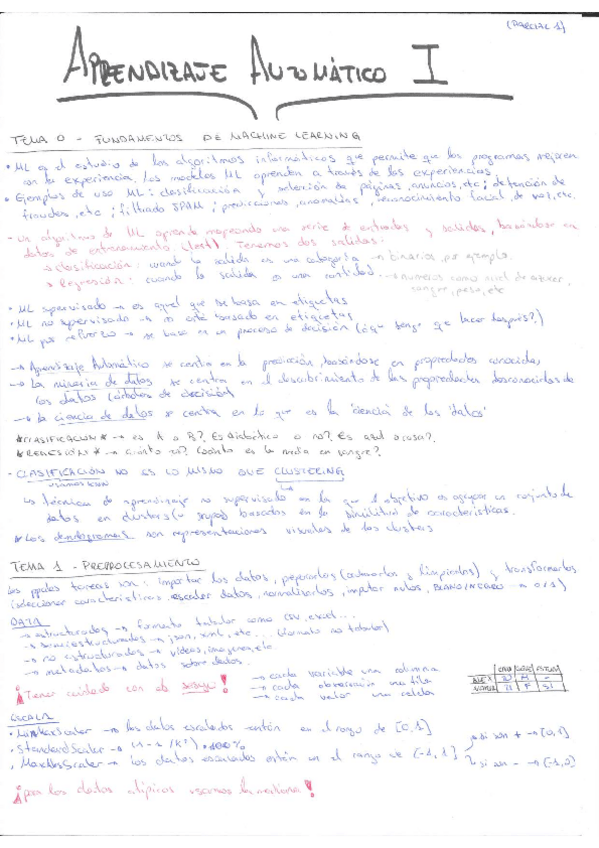 (PARCIAL 1)
APRENDIZAJE AUTOMÁTICO I
TEMA 0 - FUNDAMENTOS DE MACHINE LEARNING
• ML es el estudio de los algoritmos informáticos que permite que los programas mejoren
con la experiencia. Los modelos ML aprenden a través de las experiencias
• Ejemplos de uso ML: clasificación y selección de páginas, anuncios, etc; detención de
fraudes, etc; filtrado SPAM; predicciones, anomalías, reconocimiento facial, de voz, etc.
- Un algoritmo de ML aprende mapeando una serie de entradas y salidas, basándose en
datos de entrenamiento (test). Tenemos dos salidas:
→ clasificación: cuando la salida es una categoría → binarios, por ejemplo.
→ Regresión: cuando la salida es una cantidad → números como nivel de azúcar,
sangre, peso, etc
• ML supervisado → es aquel que se basa en etiquetas
• ML no supervisado → no está basado en etiquetas
• ML por refuerzo → se basa en un proceso de decisión (¿qué tengo que hacer después?)
→ Aprendizaje Automático se centra en la predicción, basándose en propiedades conocidas
→ La minería de datos se centra en el descubrimiento de las propiedades desconocidas de
los datos (árboles de decisión)
→ la ciencia de datos se centra en lo que es la 'ciencia' de los 'datos'
*CLASIFICACION* → es A o B? Es diabético o no? Es azul o rosa?
*REGRESIÓN* → cuánto va? Cuánto es la media en sangre?
- CLASIFICACIÓN NO ES LO MISMO QUE CLUSTERING
↳ técnicas de aprendizaje no supervisado en la que el objetivo es agrupar un conjunto de
datos en clusters (o grupos) basados en la similitud de características.
* Los dendogramas son representaciones visuales de los clusters
TEMA 1 - PREPROCESAMIENTO
Las ppales tareas son: importar los datos, prepararlos (limpiarlos) y transformarlos
(seleccionar características, escalar datos, normalizarlos, imputar nulos, BLANO/NEGRO → 0/1)
DATA
→ estructurados → formato tabular como CSV, excel...
→ semiestructurados → json, xml, etc... (formato no tabular)
→ no estructurados → vídeos, imágenes, etc.
→ metadatos → datos sobre datos.
¡Tener cuidado con el sesgo!
→ cada variable una columna
→ cada observación una fila
→ cada valor una celda
ESCALA
• MinMaxScaler → los datos escalados están en el rango de [0,1]
• StandardScaler → (1 - 1/k²) · 100%
• MaxAbsScaler → los datos escalados están en el rango de [-1,1]
si son + → [0,1]
si son - → [-1,0]
¡para los datos atípicos usamos la mediana!